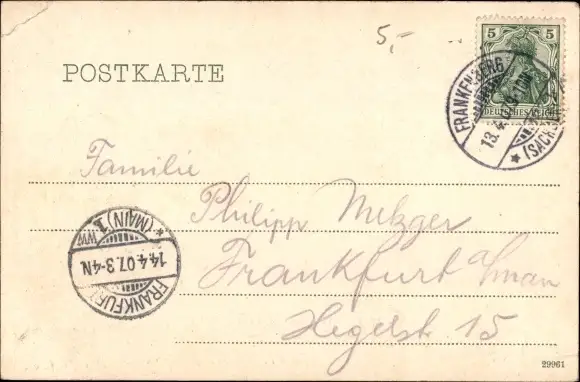 5,-
POSTKARTE
5
DEUTSCHES REICH
FRANKENBERG
13.4.
* (SACHS
Familie
Philipp Metzger
Frankfurt a/man
Hegelst 15
FRANKFURT
(MAIN) 1
*
WW
14.4.07.3-4N.
29961